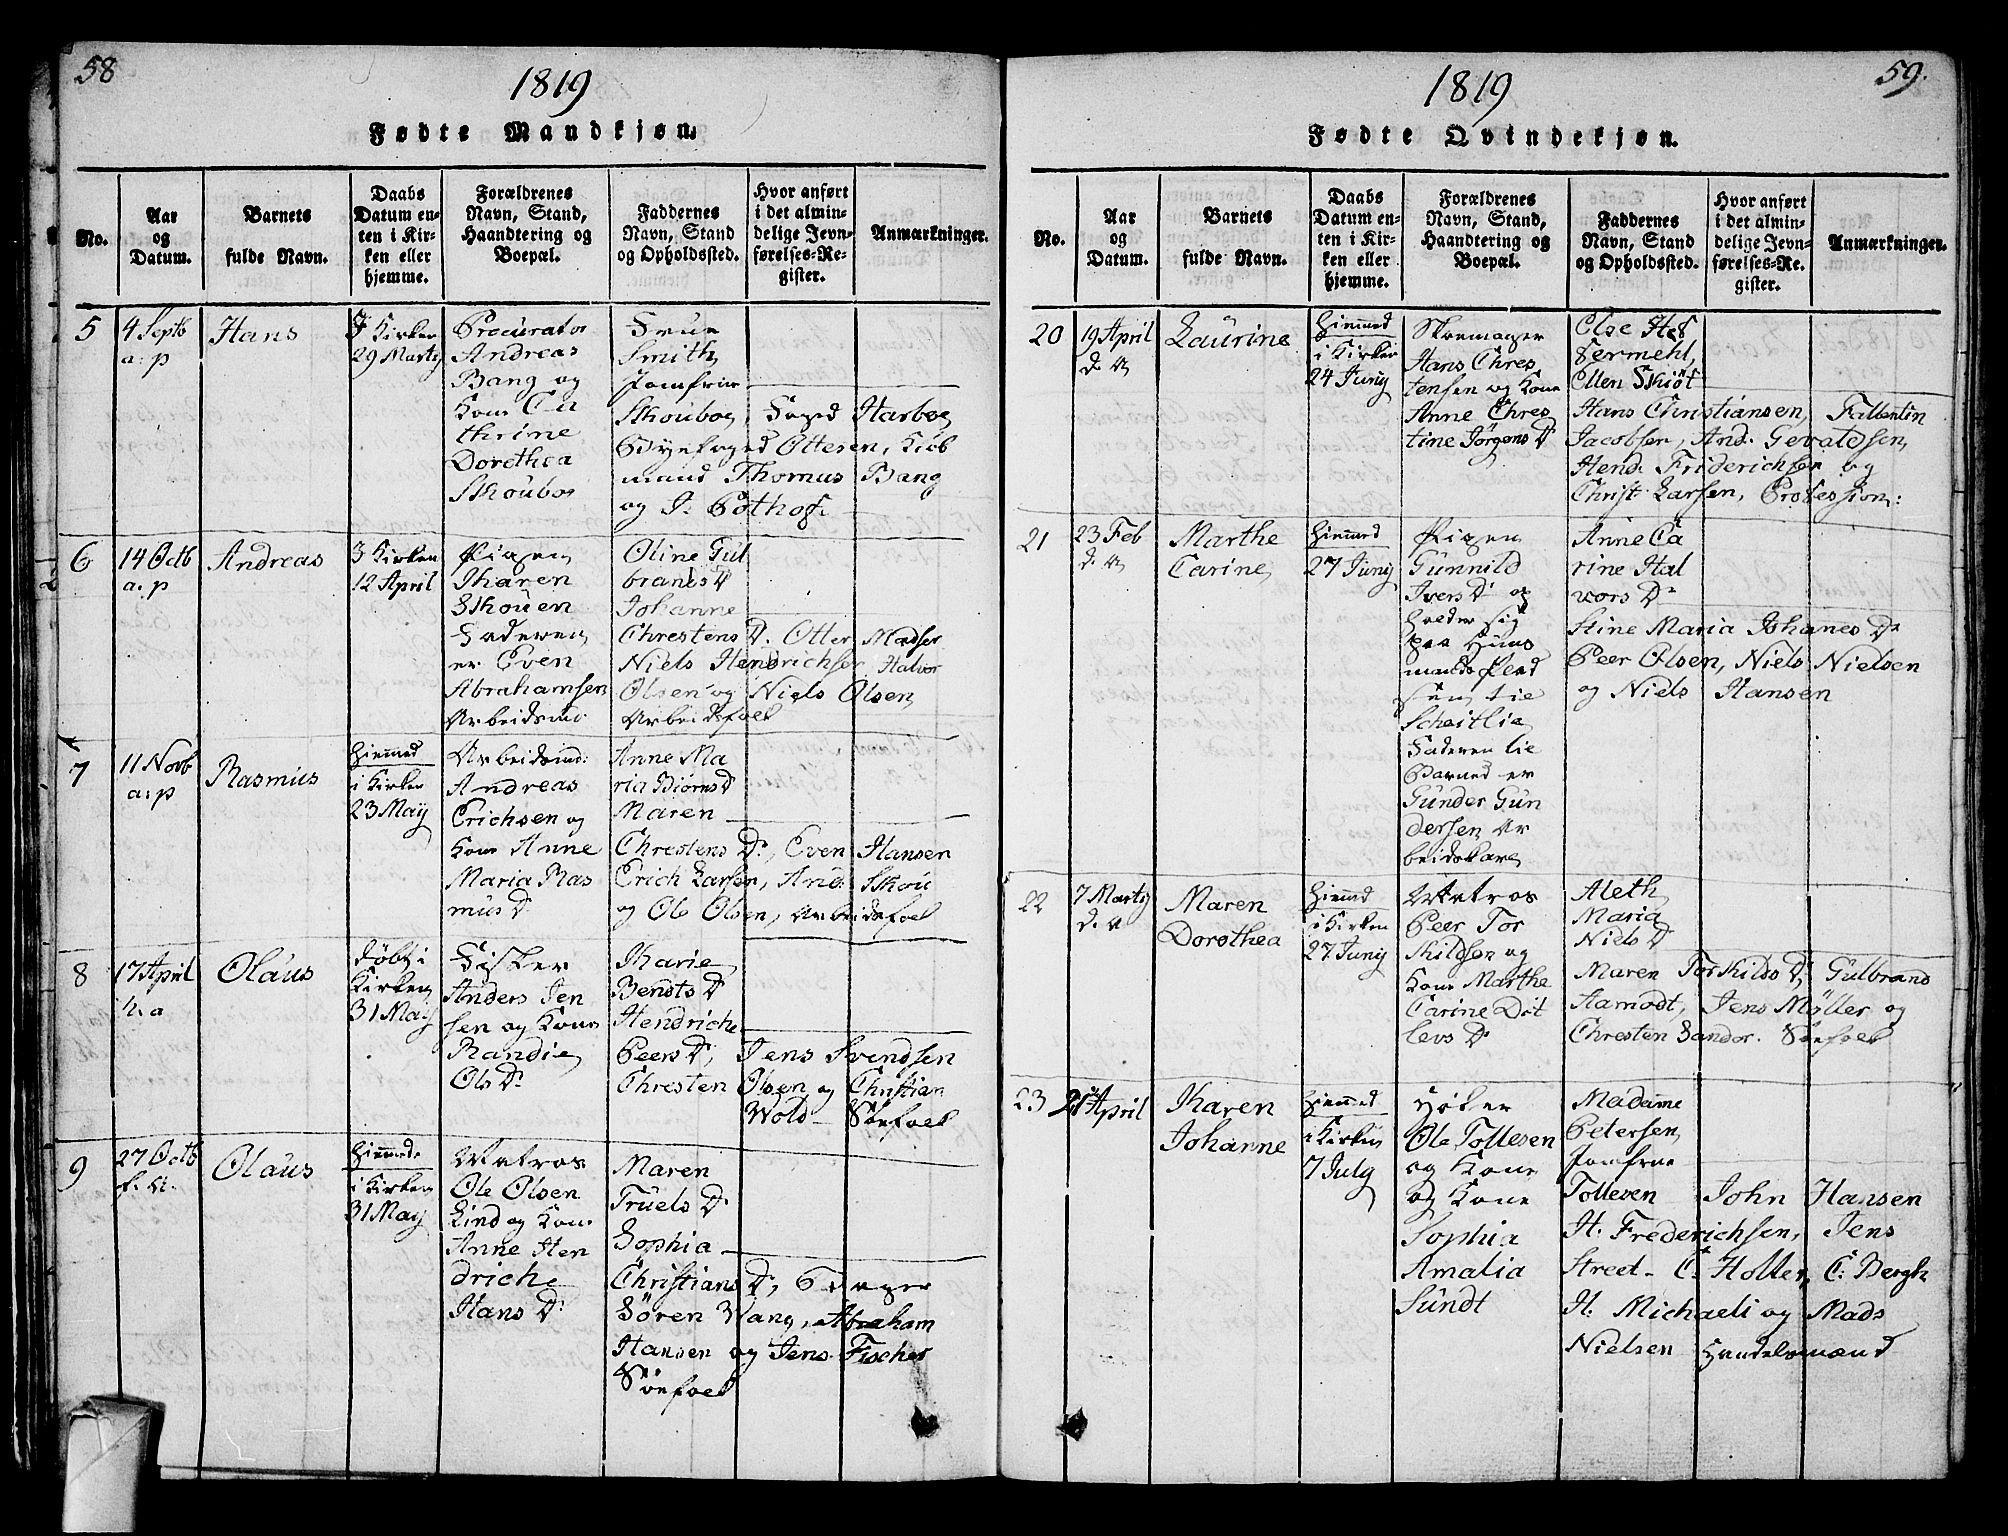 58
1819
Fødte Mandkjøn.
No.
Aar
og
Datum.
Barnets
fulde Navn.
Daabs
Datum en-
ten i Kir-
ken eller
hjemme.
Forældrenes
Navn, Stand,
Haandtering og
Boepæl.
Faddernes
Navn, Stand
og Opholdssted.
Hvor anført
i det almin-
delige Jevn-
førelses-Re-
gister.
Anmærkninger.
5
4 Septb
a: p
Hans
J Kirken
29 Marty
Procurator
Andreas
Bang og
Kone Ca
thrine
Dorethea
Skouboe
Frue
Smith
Jomfrue
Skouboe, Foged Harboe
Byefoged Ottesen, Kiøb
mand Thomus Bang
og J. Pothof.
6
14 Octb
a. p
Andreas
J Kirken
12 April
Pigen
Karen
Skouen
Faderen
er Even
Abrahamsen
Arbeidsmd.
Oline Gul
brandsD
Johanne
Chrestens D. Otter Madsen
Niels Hendrichsen Halvor
Olsen og Niels Olsen
Arbeidsfolk
7
11 Novb
a: p
Rasmus
Hiemmed
i Kirken
23 May
Arbeidsmd:
Andreas
Erichsen og
Kone Anne
Maria Ras
mus D.
Anne Ma
ria BiørnsD
Maren
Chrestens D., Even Hansen
Erich Larsen, And. Skou
og Ole Olsen, Arbeidsfolk
8
17 April
h. a
Olaus
døbt i
Kirken
31 May
Fisker
Anders Jen
sen og Kone
Randie
Ols D.
Marie
Bendts D
Hendriche
Peers D, Jens Svendsen
Chresten Olsen og Christian
Wold - Søefolk
9
27 Octb
f. A.
Olaus
Hiemmed.
i Kirken
31 May
Matros
Ole Olsen
Lind og Kone
Anne Hen
driche
Hans D.
Maren
Truels D.
Sophia
Christians D,
Søren Wang, Abraham
Hansen og Jens Fischer
Søefolk
59.
1819
Fødte Qvindekjøn.
No.
Aar
og
Datum.
Barnets
fulde Navn.
Daabs
Datum en-
ten i Kir-
ken eller
hjemme.
Forældrenes
Navn, Stand,
Haandtering og
Boepæl.
Faddernes
Navn, Stand
og Opholdssted.
Hvor anført
i det almin-
delige Jevn-
førelses-Re-
gister.
Anmærkninger.
20
19 April
d. A
Laurine
Hiemmed
i Kirken
24 Juny
Skoemager
Hans Chres
tensen og Kone
Anne Chres
tine Jørgens D.
Else Hes
sermehl,
Ellen Skiøt
Hans Christiansen, Fallentin
Jacobsen, And. Gevaldsen,
Hend. Friderichsen og
Christ. Larsen, Profession:
21
23 Feb
d. A
Marthe
Carine
Hiemmed
27 Juny
Pigen
Gunnild
Ivers D. og
holder sig
paa Huus
mands Plad
sen
Scheitlie
Faderen tie
Barned er
Gunder Gun
dersen Ar
beidskare
Anne Ca
rine Hal
vors D.
Stine Maria Johanes D.
Peer Olsen, Niels Nielsen
og Niels Hansen
22
7 Marty
d. A
Maren
Dorothea
Hiemmed
i Kirken
27 Juny
Matros
Peer Tor
kildsen og
Kone Marthe
Carine Dit
levs D.
Aleth
Maria
Niels D
Maren Torkilds D, Gulbrand
Aamodt, Jens Møller og
Chresten Sandor. Søefolk
23
21 April
Karen
Johanne
Hiemmed
i Kirken
7 July
Høker
Ole Tollesen
og Kone
og Kone
Sophia
Amalia
Sundt
Madame
Petersen
Jomfrue
Tollesen John Hansen
H. Frederichsen, Jens
Street - C. Holter, C: Bergh
H. Michaeli og Mads
Nielsen Handelsmænd